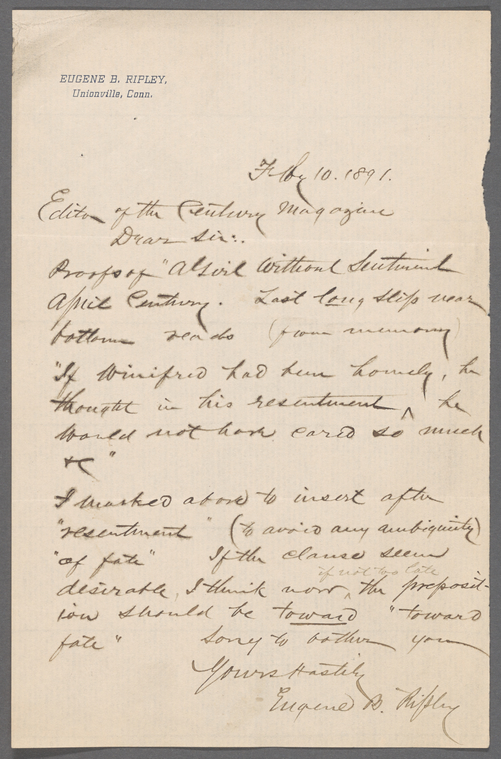 EUGENE B. RIPLEY,
Unionville, Conn.
Feby 10. 1891.
Editor of the Century Magazine
Dear Sir:.
Proofs of "A Girl Without Sentiment
April Century. Last long slip near
bottom reads (from memory)
"If Winifred had been homely, he
thought in his resentment ^ he
would not have cared so much
&c"
I marked above to insert after
"resentment" (to avoid any ambiguity)
"of fate" If the clause seem
if not too late
desirable, I think now ^ the preposit-
ion should be toward "toward
fate" Sorry to bother you
Yours Hastily
Eugene B. Ripley